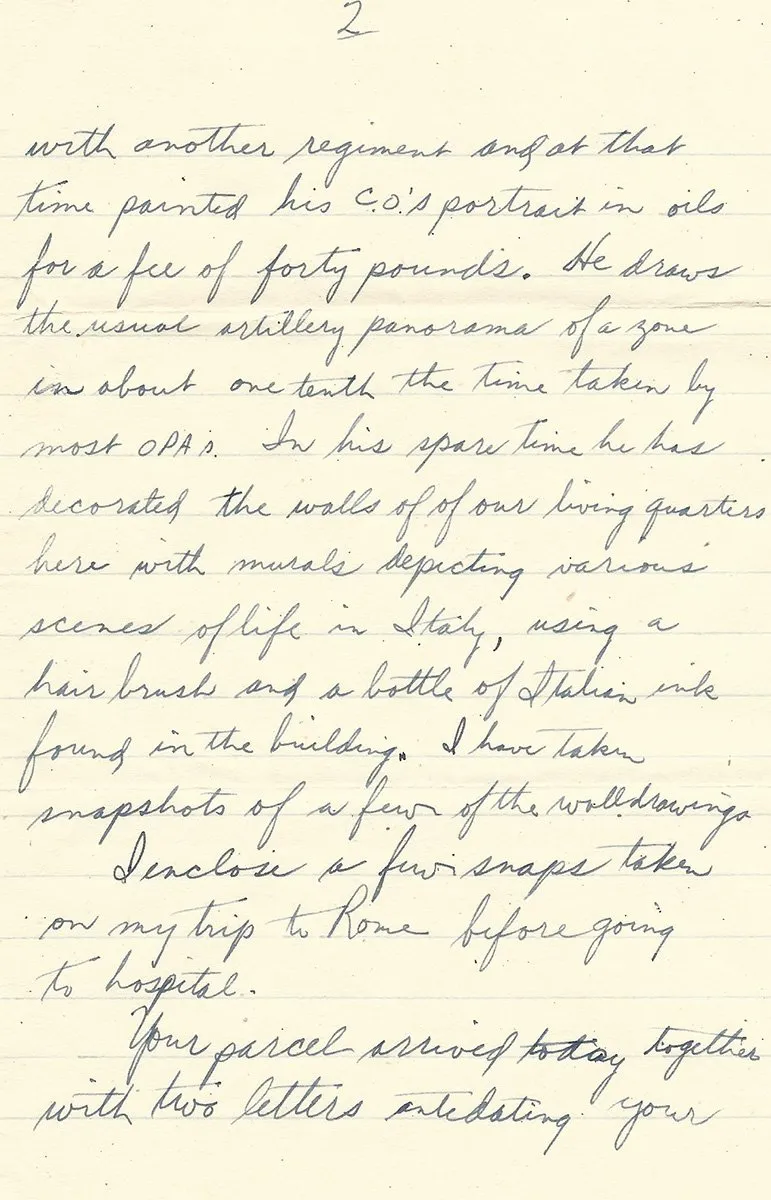 2
with another regiment and at that
time painted his C.O.'s portrait in oils
for a fee of forty pounds. He draws
the usual artillery panorama of a zone
in about one tenth the time taken by
most OPAs. In his spare time he has
decorated the walls of of our living quarters
here with murals depicting various
scenes of life in Italy, using a
hair brush and a bottle of Italian ink
found in the building. I have taken
snapshots of a few of the wall drawings
I enclose a few snaps taken
on my trip to Rome before going
to hospital.
Your parcel arrived today together
with two letters antedating your